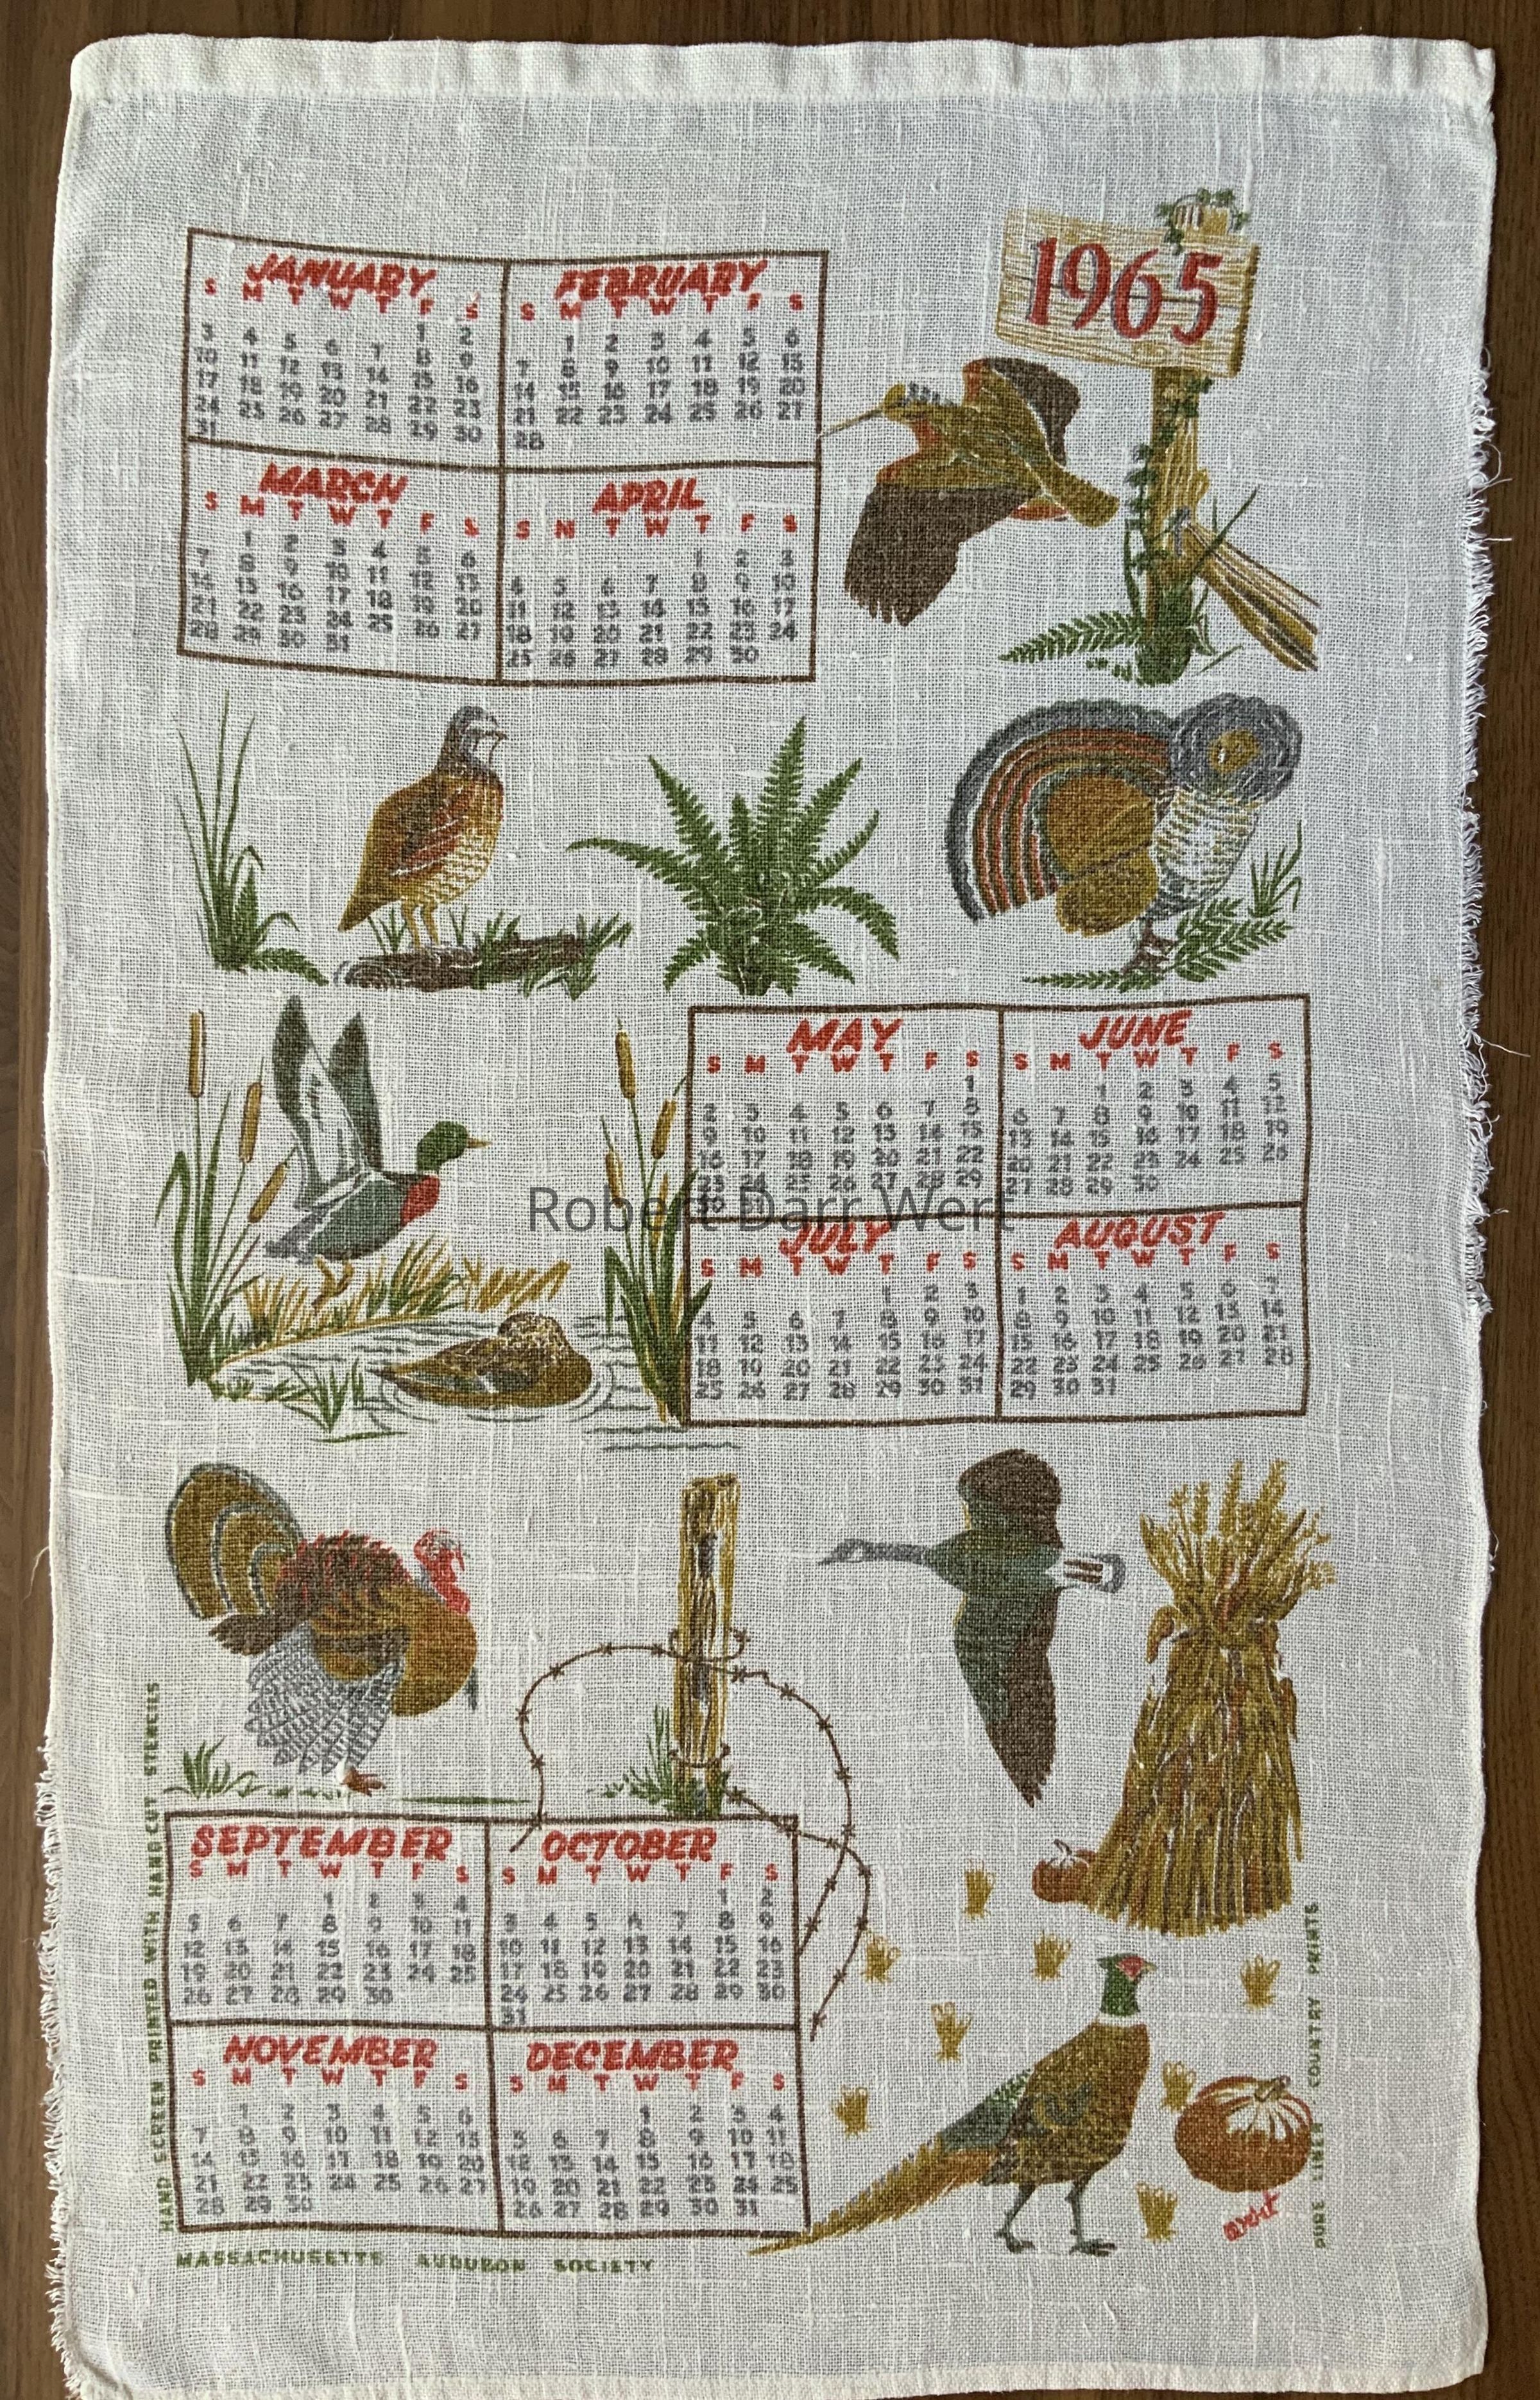 1965
JANUARY
S M T W T F S
1 2
3 4 5 6 7 8 9
10 11 12 13 14 15 16
17 18 19 20 21 22 23
24 25 26 27 28 29 30
31
FEBRUARY
S M T W T F S
1 2 3 4 5 6
7 8 9 10 11 12 13
14 15 16 17 18 19 20
21 22 23 24 25 26 27
28
MARCH
S M T W T F S
1 2 3 4 5 6
7 8 9 10 11 12 13
14 15 16 17 18 19 20
21 22 23 24 25 26 27
28 29 30 31
APRIL
S M T W T F S
1 2 3
4 5 6 7 8 9 10
11 12 13 14 15 16 17
18 19 20 21 22 23 24
25 26 27 28 29 30
MAY
S M T W T F S
1
2 3 4 5 6 7 8
9 10 11 12 13 14 15
16 17 18 19 20 21 22
23 24 25 26 27 28 29
30 31
JUNE
S M T W T F S
1 2 3 4 5
6 7 8 9 10 11 12
13 14 15 16 17 18 19
20 21 22 23 24 25 26
27 28 29 30
Robert Darr Wert
JULY
S M T W T F S
1 2 3
4 5 6 7 8 9 10
11 12 13 14 15 16 17
18 19 20 21 22 23 24
25 26 27 28 29 30 31
AUGUST
S M T W T F S
1 2 3 4 5 6 7
8 9 10 11 12 13 14
15 16 17 18 19 20 21
22 23 24 25 26 27 28
29 30 31
SEPTEMBER
S M T W T F S
1 2 3 4
5 6 7 8 9 10 11
12 13 14 15 16 17 18
19 20 21 22 23 24 25
26 27 28 29 30
OCTOBER
S M T W T F S
1 2
3 4 5 6 7 8 9
10 11 12 13 14 15 16
17 18 19 20 21 22 23
24 25 26 27 28 29 30
31
NOVEMBER
S M T W T F S
1 2 3 4 5 6
7 8 9 10 11 12 13
14 15 16 17 18 19 20
21 22 23 24 25 26 27
28 29 30
DECEMBER
S M T W T F S
1 2 3 4
5 6 7 8 9 10 11
12 13 14 15 16 17 18
19 20 21 22 23 24 25
26 27 28 29 30 31
HAND SCREEN PRINTED WITH HAND CUT STENCILS
PURE LINEN COUNTRY PRINTS
MASSACHUSETTS AUDUBON SOCIETY